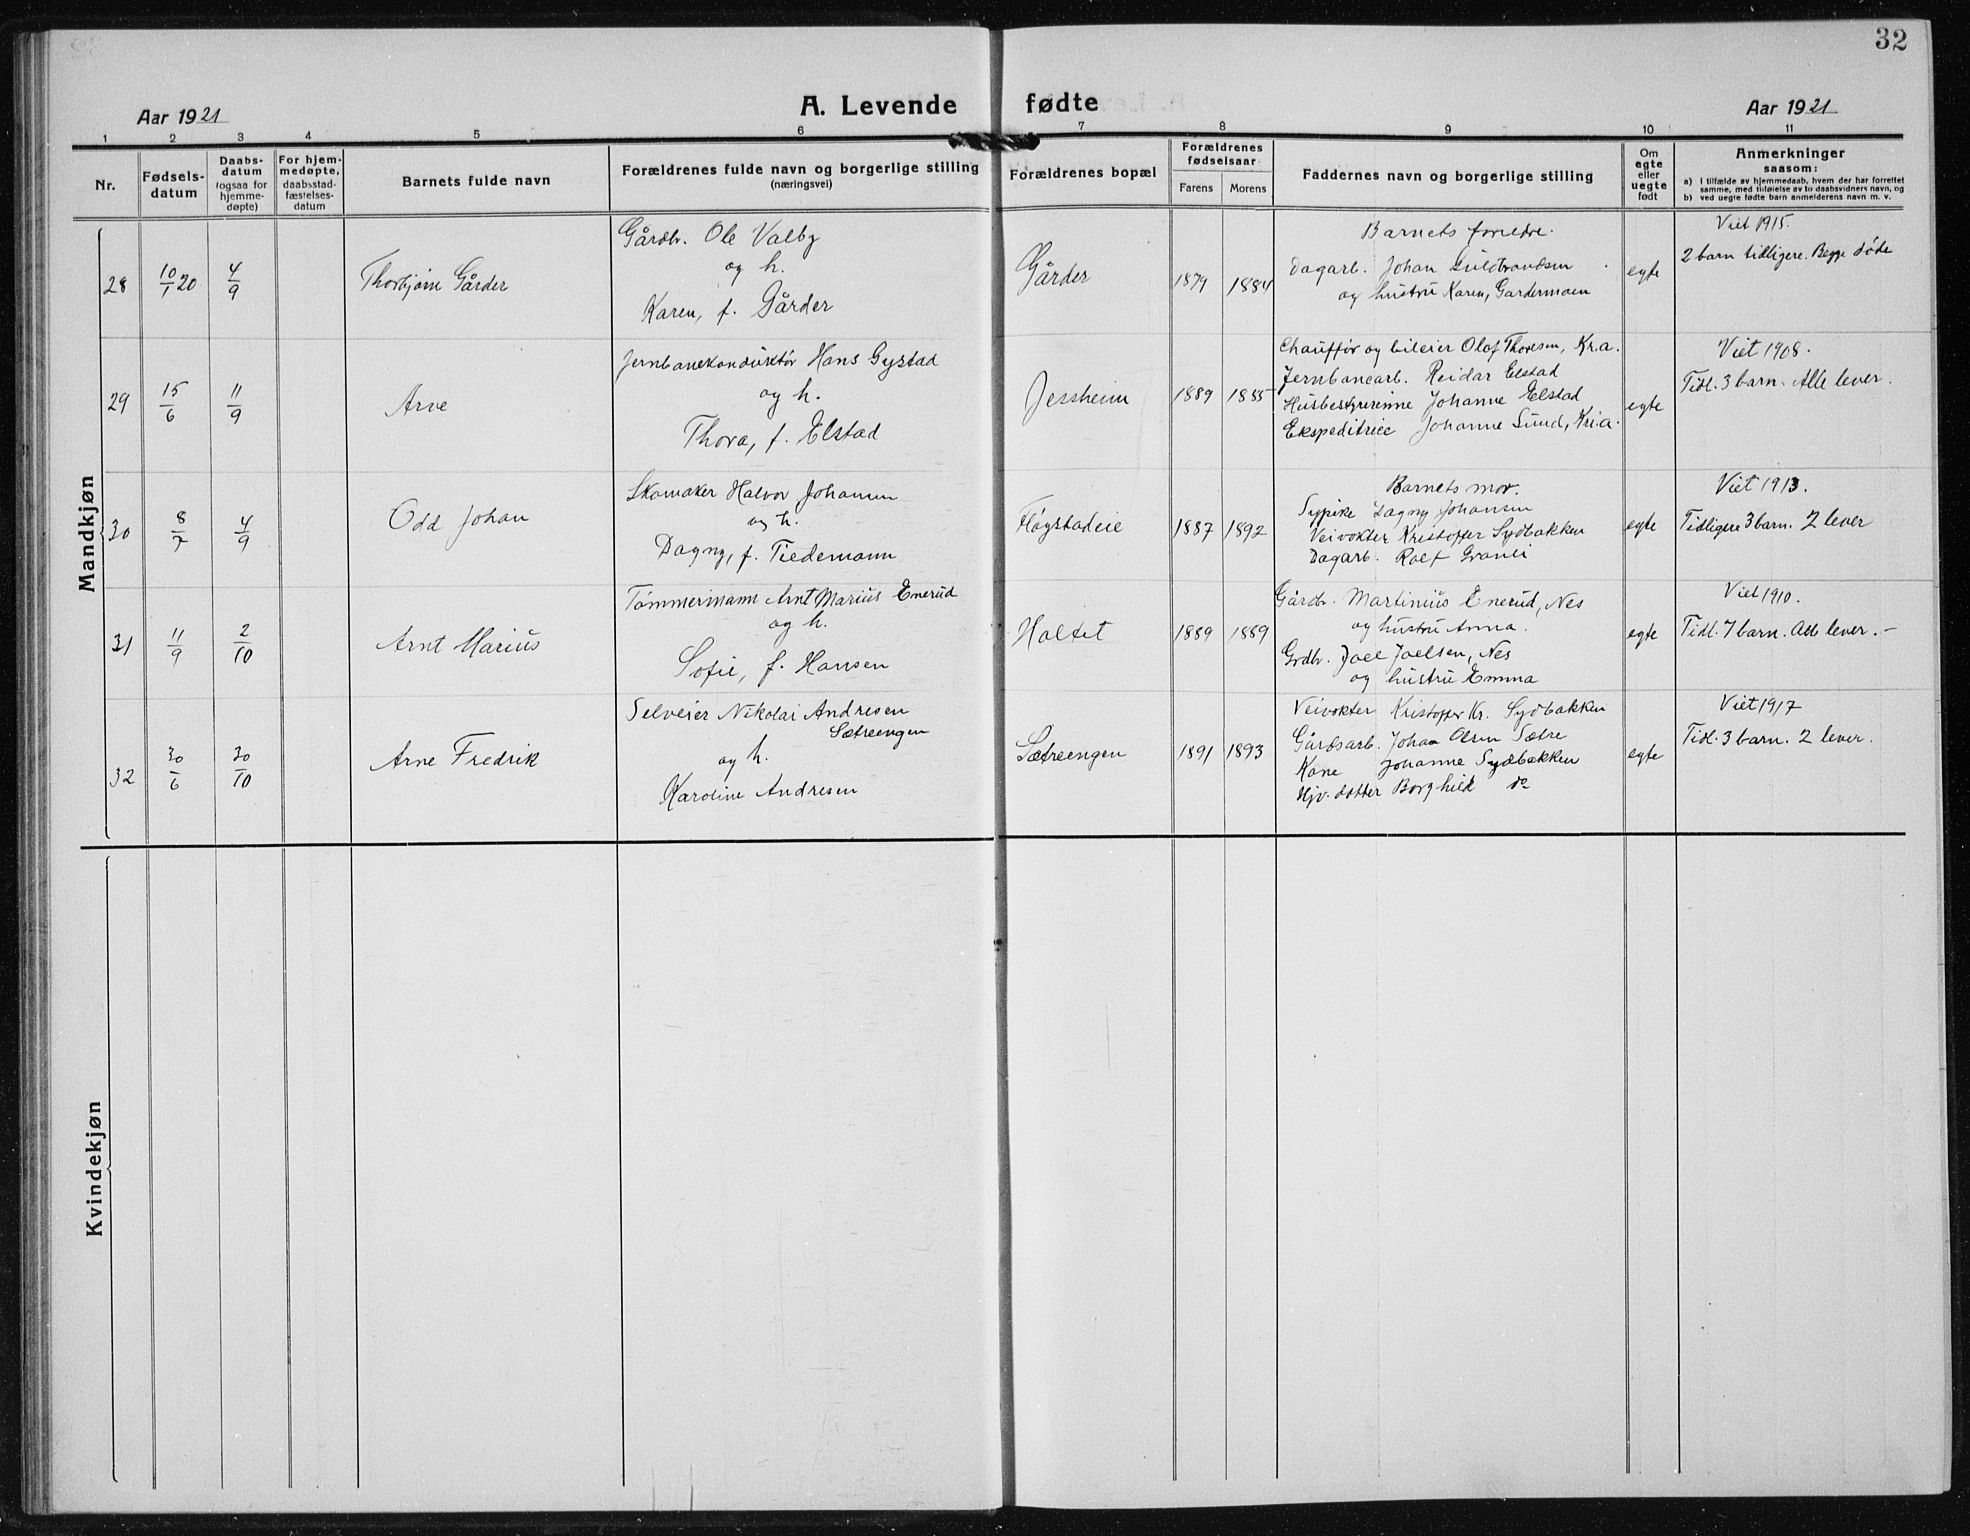 32
A. Levende fødte
Aar 1921
Aar 1921
1 2 3 4 5 6 7 8 9 10 11
Nr.
Fødsels-
datum
Daabs-
datum
(ogsaa for
hjemme-
døpte)
For hjem-
medøpte,
daabsstad-
fæstelses-
datum
Barnets fulde navn
Forældrenes fulde navn og borgerlige stilling
(næringsvei)
Forældrenes bopæl
Forældrenes
fødselsaar
Farens Morens
Faddernes navn og borgerlige stilling
Om
egte
eller
uegte
født
Anmerkninger
saasom:
a) I tilfælde av hjemmedaab, hvem der har forrettet
samme, med tilføielse av to daabsvidners navn, og
b) ved uegte fødte barn anmelderens navn m. v.
Mandkjøn
28 10/1 20 4/9 Thorbjørn Gårder
Gårdbr. Ole Valby
og h.
Karen, f. Gårder
Gårder 1879 1884
Barnets foreldre.
Dagarb. Johan Guldbrandsen
og hustru Karen, Gardermoen
egte
Viet 1915.
2 barn tidligere. Begge døde
29 15/6 11/9 Arne
Jernbanekonduktør Hans Gystad
og h.
Thora, f. Elstad
Jessheim 1889 1885
Chauffør og bileier Olaf Thoresen, Kr.a.
Jernbanearb. Reidar Elstad
Husbestyrerinne Johanne Elstad
Ekspeditrice Johanne Sund, Kr.a.
egte
Viet 1908.
Tidl. 3 barn. Alle lever.
30 8/7 4/9 Odd Johan
Skomaker Halvor Johansen
og h.
Dagny, f. Tiedemann
Høgstadeie 1887 1892
Barnets mor.
Sypike Dagny Johansen
Veivokter Kristoffer Sydbakken
Dagarb. Rolf
egte
Viet 1913.
Tidligere 3 barn. 2 lever
31 11/9 2/10 Arnt Marius
Tømmermann Arnt Marius Enerud
og h.
Sofie, f. Hansen
Holtet 1889 1889
Gårdbr. Martinius Enerud, Nes
og hustru Anna.
Grdbr. Joel Joelsen, Nes
og hustru Emma
egte
Viet 1910.
Tidl. 7 barn. Alle lever.-
32 30/6 30/10 Arne Fredrik
Selveier Nikolai Andresen
Sætreengen
og h.
Karoline Andresen
Sætreengen 1891 1893
Veivokter Kristoffer Kr. Sydbakken
Gårdsarb. Johan Olsen Sætre
Kone Johanne Sydbakken
Hjv. datter Borghild do
egte
Viet 1917
Tidl. 3 barn. 2 lever.
Kvindekjøn